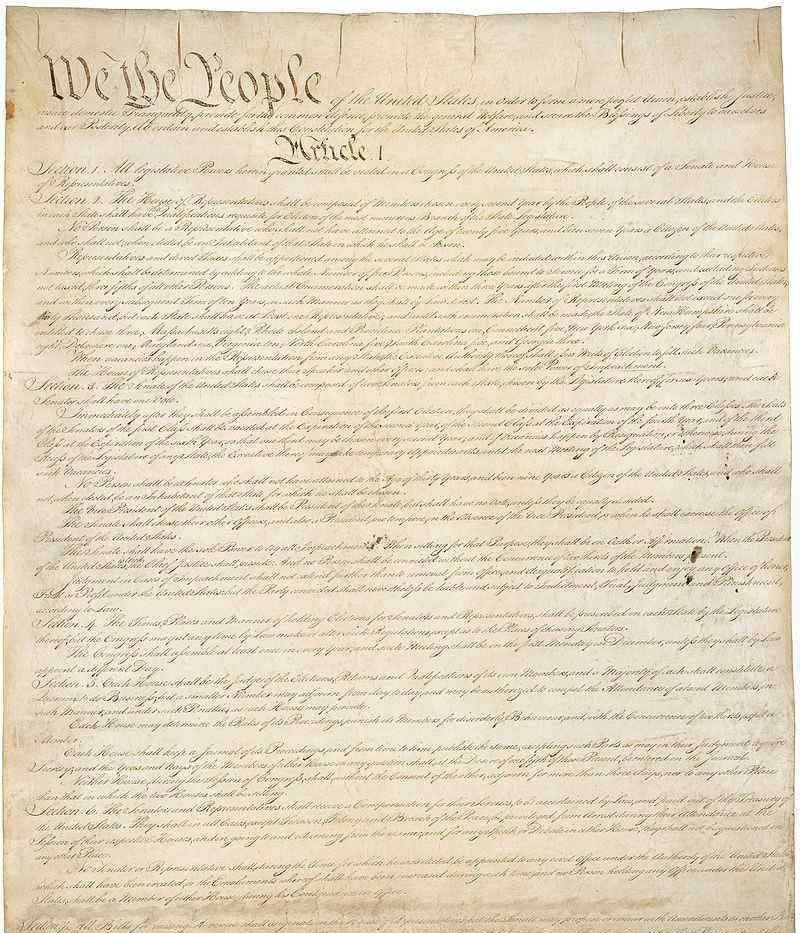 We the People of the United States, in Order to form a more perfect Union, establish Justice,
insure domestic Tranquility, provide for the common defence, promote the general Welfare, and secure the Blessings of Liberty to ourselves
and our Posterity, do ordain and establish this Constitution for the United States of America.
Article. I.
Section. 1. All legislative Powers herein granted shall be vested in a Congress of the United States, which shall consist of a Senate and House
of Representatives.
Section. 2. The House of Representatives shall be composed of Members chosen every second Year by the People of the several States, and the Electors
in each State shall have the Qualifications requisite for Electors of the most numerous Branch of the State Legislature.
No Person shall be a Representative who shall not have attained to the Age of twenty five Years, and been seven Years a Citizen of the United States,
and who shall not, when elected, be an Inhabitant of that State in which he shall be chosen.
Representatives and direct Taxes shall be apportioned among the several States which may be included within this Union, according to their respective
Numbers, which shall be determined by adding to the whole Number of free Persons, including those bound to Service for a Term of Years, and excluding Indians
not taxed, three fifths of all other Persons. The actual Enumeration shall be made within three Years after the first Meeting of the Congress of the United States,
and within every subsequent Term of ten Years, in such Manner as they shall by Law direct. The Number of Representatives shall not exceed one for every
thirty Thousand, but each State shall have at Least one Representative; and until such enumeration shall be made, the State of New Hampshire shall be
entitled to chuse three, Massachusetts eight, Rhode-Island and Providence Plantations one, Connecticut five, New-York six, New Jersey four, Pennsylvania
eight, Delaware one, Maryland six, Virginia ten, North Carolina five, South Carolina five, and Georgia three.
When vacancies happen in the Representation from any State, the Executive Authority thereof shall issue Writs of Election to fill such Vacancies.
The House of Representatives shall chuse their Speaker and other Officers; and shall have the sole Power of Impeachment.
Section. 3. The Senate of the United States shall be composed of two Senators from each State, chosen by the Legislature thereof, for six Years; and each
Senator shall have one Vote.
Immediately after they shall be assembled in Consequence of the first Election, they shall be divided as equally as may be into three Classes. The Seats
of the Senators of the first Class shall be vacated at the Expiration of the second Year, of the second Class at the Expiration of the fourth Year, and of the third
Class at the Expiration of the sixth Year, so that one third may be chosen every second Year; and if Vacancies happen by Resignation, or otherwise, during the
Recess of the Legislature of any State, the Executive thereof may make temporary Appointments until the next Meeting of the Legislature, which shall then fill
such Vacancies.
No Person shall be a Senator who shall not have attained to the Age of thirty Years, and been nine Years a Citizen of the United States, and who shall
not, when elected, be an Inhabitant of that State for which he shall be chosen.
The Vice President of the United States shall be President of the Senate, but shall have no Vote, unless they be equally divided.
The Senate shall chuse their other Officers, and also a President pro tempore, in the Absence of the Vice President, or when he shall exercise the Office of
President of the United States.
The Senate shall have the sole Power to try all Impeachments. When sitting for that Purpose, they shall be on Oath or Affirmation. When the President
of the United States is tried, the Chief Justice shall preside: And no Person shall be convicted without the Concurrence of two thirds of the Members present.
Judgment in Cases of Impeachment shall not extend further than to removal from Office, and disqualification to hold and enjoy any Office of honor,
Trust or Profit under the United States: but the Party convicted shall nevertheless be liable and subject to Indictment, Trial, Judgment and Punishment,
according to Law.
Section. 4. The Times, Places and Manner of holding Elections for Senators and Representatives, shall be prescribed in each State by the Legislature
thereof; but the Congress may at any time by Law make or alter such Regulations, except as to the Places of chusing Senators.
The Congress shall assemble at least once in every Year, and such Meeting shall be on the first Monday in December, unless they shall by Law
appoint a different Day.
Section. 5. Each House shall be the Judge of the Elections, Returns and Qualifications of its own Members, and a Majority of each shall constitute a
Quorum to do Business; but a smaller Number may adjourn from day to day, and may be authorized to compel the Attendance of absent Members, in
such Manner, and under such Penalties as each House may provide.
Each House may determine the Rules of its Proceedings, punish its Members for disorderly Behaviour, and, with the Concurrence of two thirds, expel a
Member.
Each House shall keep a Journal of its Proceedings, and from time to time publish the same, excepting such Parts as may in their Judgment require
Secrecy; and the Yeas and Nays of the Members of either House on any question shall, at the Desire of one fifth of those Present, be entered on the Journal.
Neither House, during the Session of Congress, shall, without the Consent of the other, adjourn for more than three days, nor to any other Place
than that in which the two Houses shall be sitting.
Section. 6. The Senators and Representatives shall receive a Compensation for their Services, to be ascertained by Law, and paid out of the Treasury of
the United States. They shall in all Cases, except Treason, Felony and Breach of the Peace, be privileged from Arrest during their Attendance at the
Session of their respective Houses, and in going to and returning from the same; and for any Speech or Debate in either House, they shall not be questioned in
any other Place.
No Senator or Representative shall, during the Time for which he was elected, be appointed to any civil Office under the Authority of the United States,
which shall have been created, or the Emoluments whereof shall have been encreased during such time; and no Person holding any Office under the United
States, shall be a Member of either House during his Continuance in Office.
Section. 7. All Bills for raising Revenue shall originate in the House of Representatives; but the Senate may propose or concur with Amendments as on other Bills.